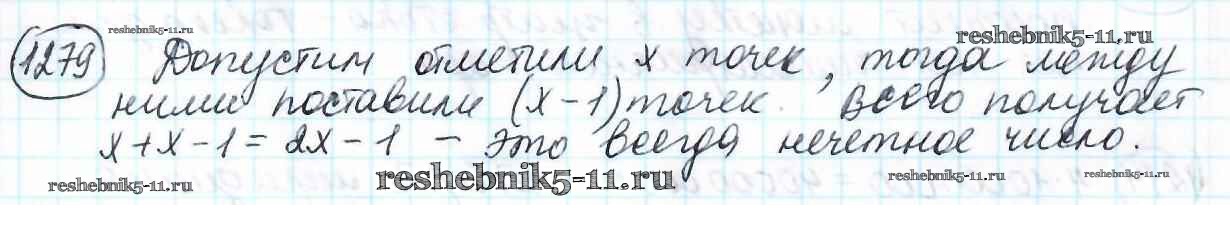 reshebnik5-11.ru
reshebnik5-11.ru
1279 Допустим отметили x точек, тогда между
ними поставили (x-1) точек. Всего получает
x+x-1=2x-1 - это всегда нечетное число.
reshebnik5-11.ru
reshebnik5-11.ru
reshebnik5-11.ru